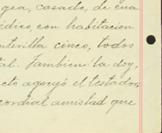 gea, casado, de cua
édico con habitacion
enterilla cinco, todos
tal. Tambien la doy.
cto agregó el testador
cordial amistad que